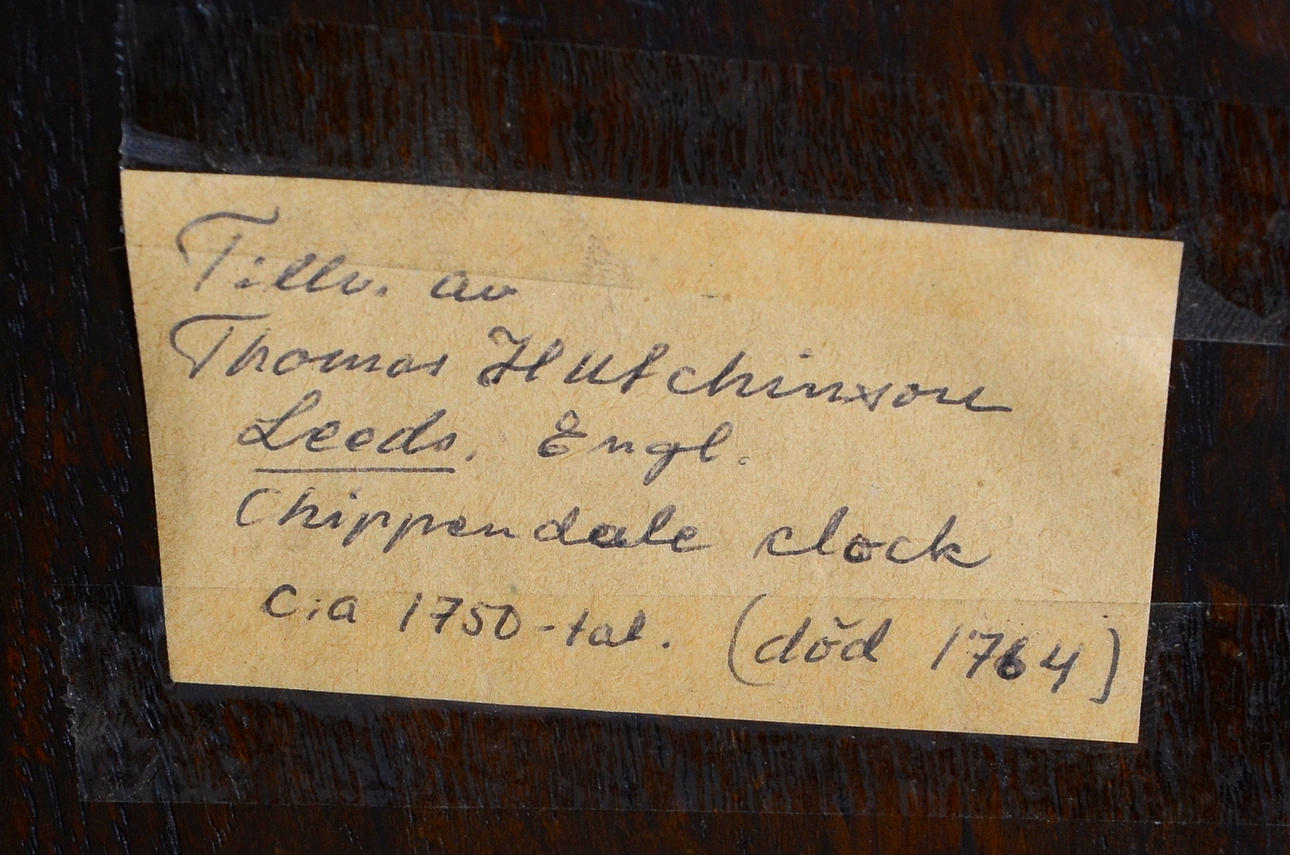 Tillv. av
Thomas Hutchinson
Leeds. Engl.
Chippendale clock
c:a 1750-tal. (död 1764)